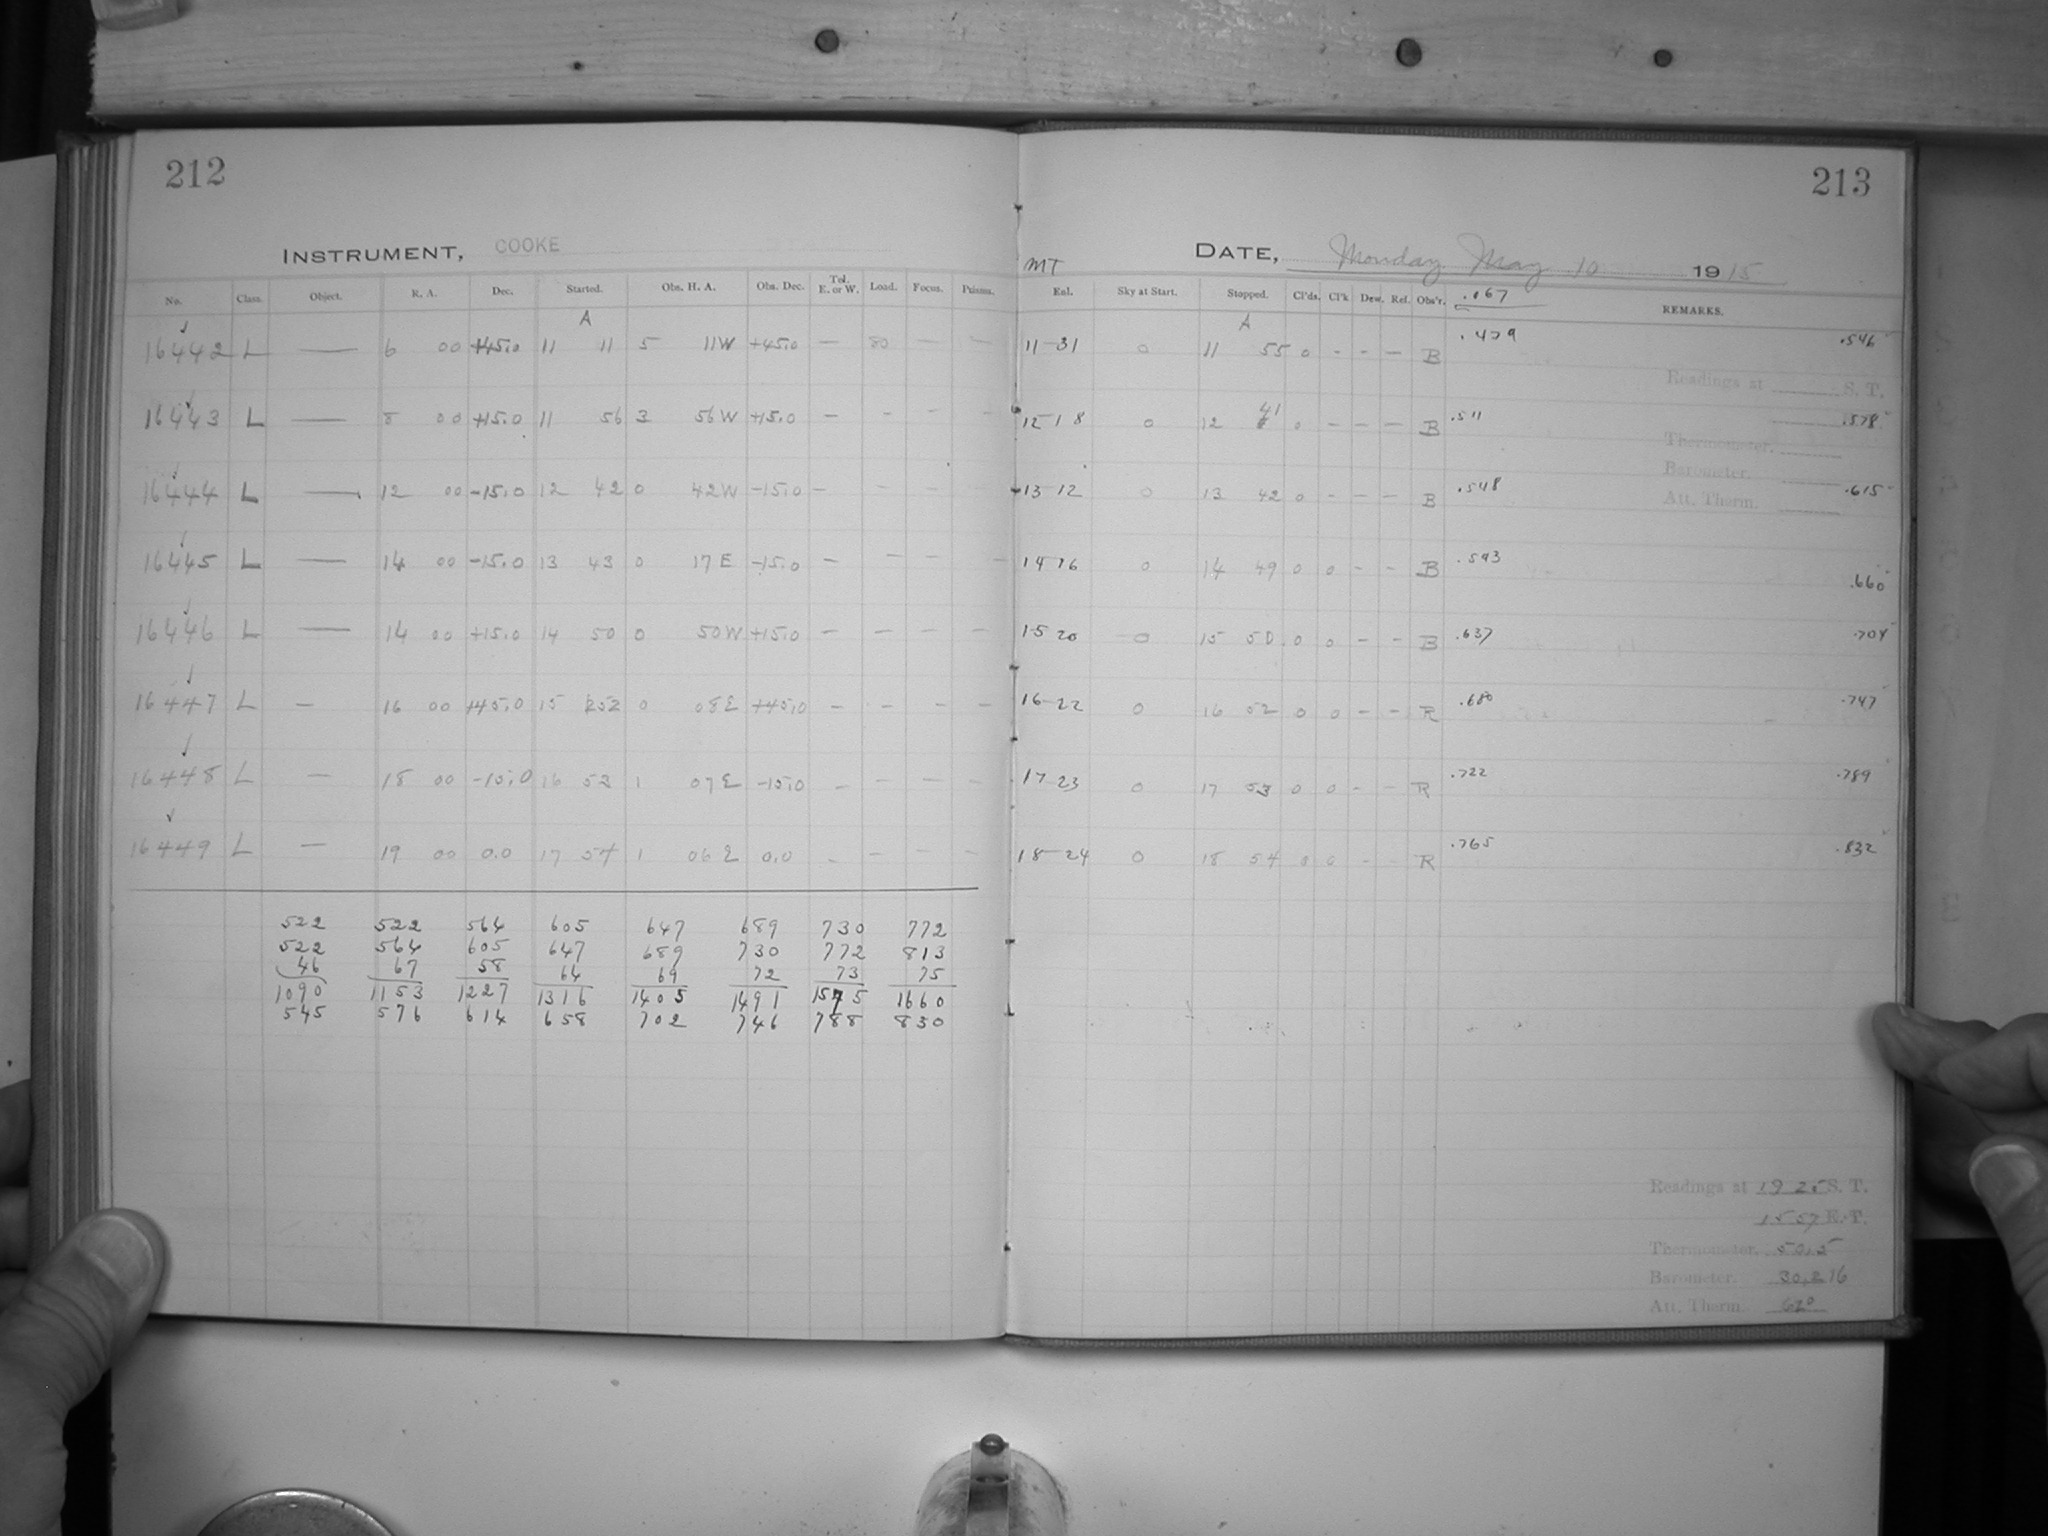 212
INSTRUMENT, COOKE
No. Class. Object. R. A. Dec. Started. Obs. H. A. Obs. Dec. Tel. E. or W. Load. Focus. Prisms.
A
16442 L — 6 00 +45.0 11 11 5 11W +45.0 — 80 — —
16443 L — 8 00 +15.0 11 56 3 56W +15.0 — - - -
16444 L — 12 00 -15.0 12 42 0 42W -15.0 — - - -
16445 L — 14 00 -15.0 13 43 0 17E -15.0 — - - -
16446 L — 14 00 +15.0 14 50 0 50W +15.0 — — — —
16447 L — 16 00 +45.0 15 52 0 08E +45.0 - - — —
16448 L — 18 00 -15.0 16 53 1 07E -15.0 — - — —
16449 L — 19 00 0.0 17 54 1 06E 0.0 - - — —
522 522 564 605 647 689 730 772
522 564 605 647 689 730 772 813
46 67 58 64 69 72 73 75
1090 1153 1227 1316 1405 1491 1575 1660
545 576 614 658 702 746 788 830
213
DATE, Monday May 10 1915
MT
Exl. Sky at Start. Stopped. Cl'ds. Cl'k Dew. Ref. Obs'r. .067 REMARKS.
A
11-31 0 11 55 0 - - — B .479 .546
Readings at S. T.
12-18 0 12 41 0 — — — B .511 .578
Thermometer.
Barometer.
13 12 0 13 42 0 - — — B .548 .615
Att. Therm.
14 16 0 14 49 0 0 - - B .593 .660
15 20 0 15 50 0 0 - - B .637 .704
16-22 0 16 52 0 0 — - R .680 .747
17-23 0 17 53 0 0 - - R .722 .789
18-24 0 18 54 0 0 - - R .765 .832
Readings at 19 25 S. T.
15 57 E. T.
Thermometer. 50.5
Barometer. 30.216
Att. Therm. 62°